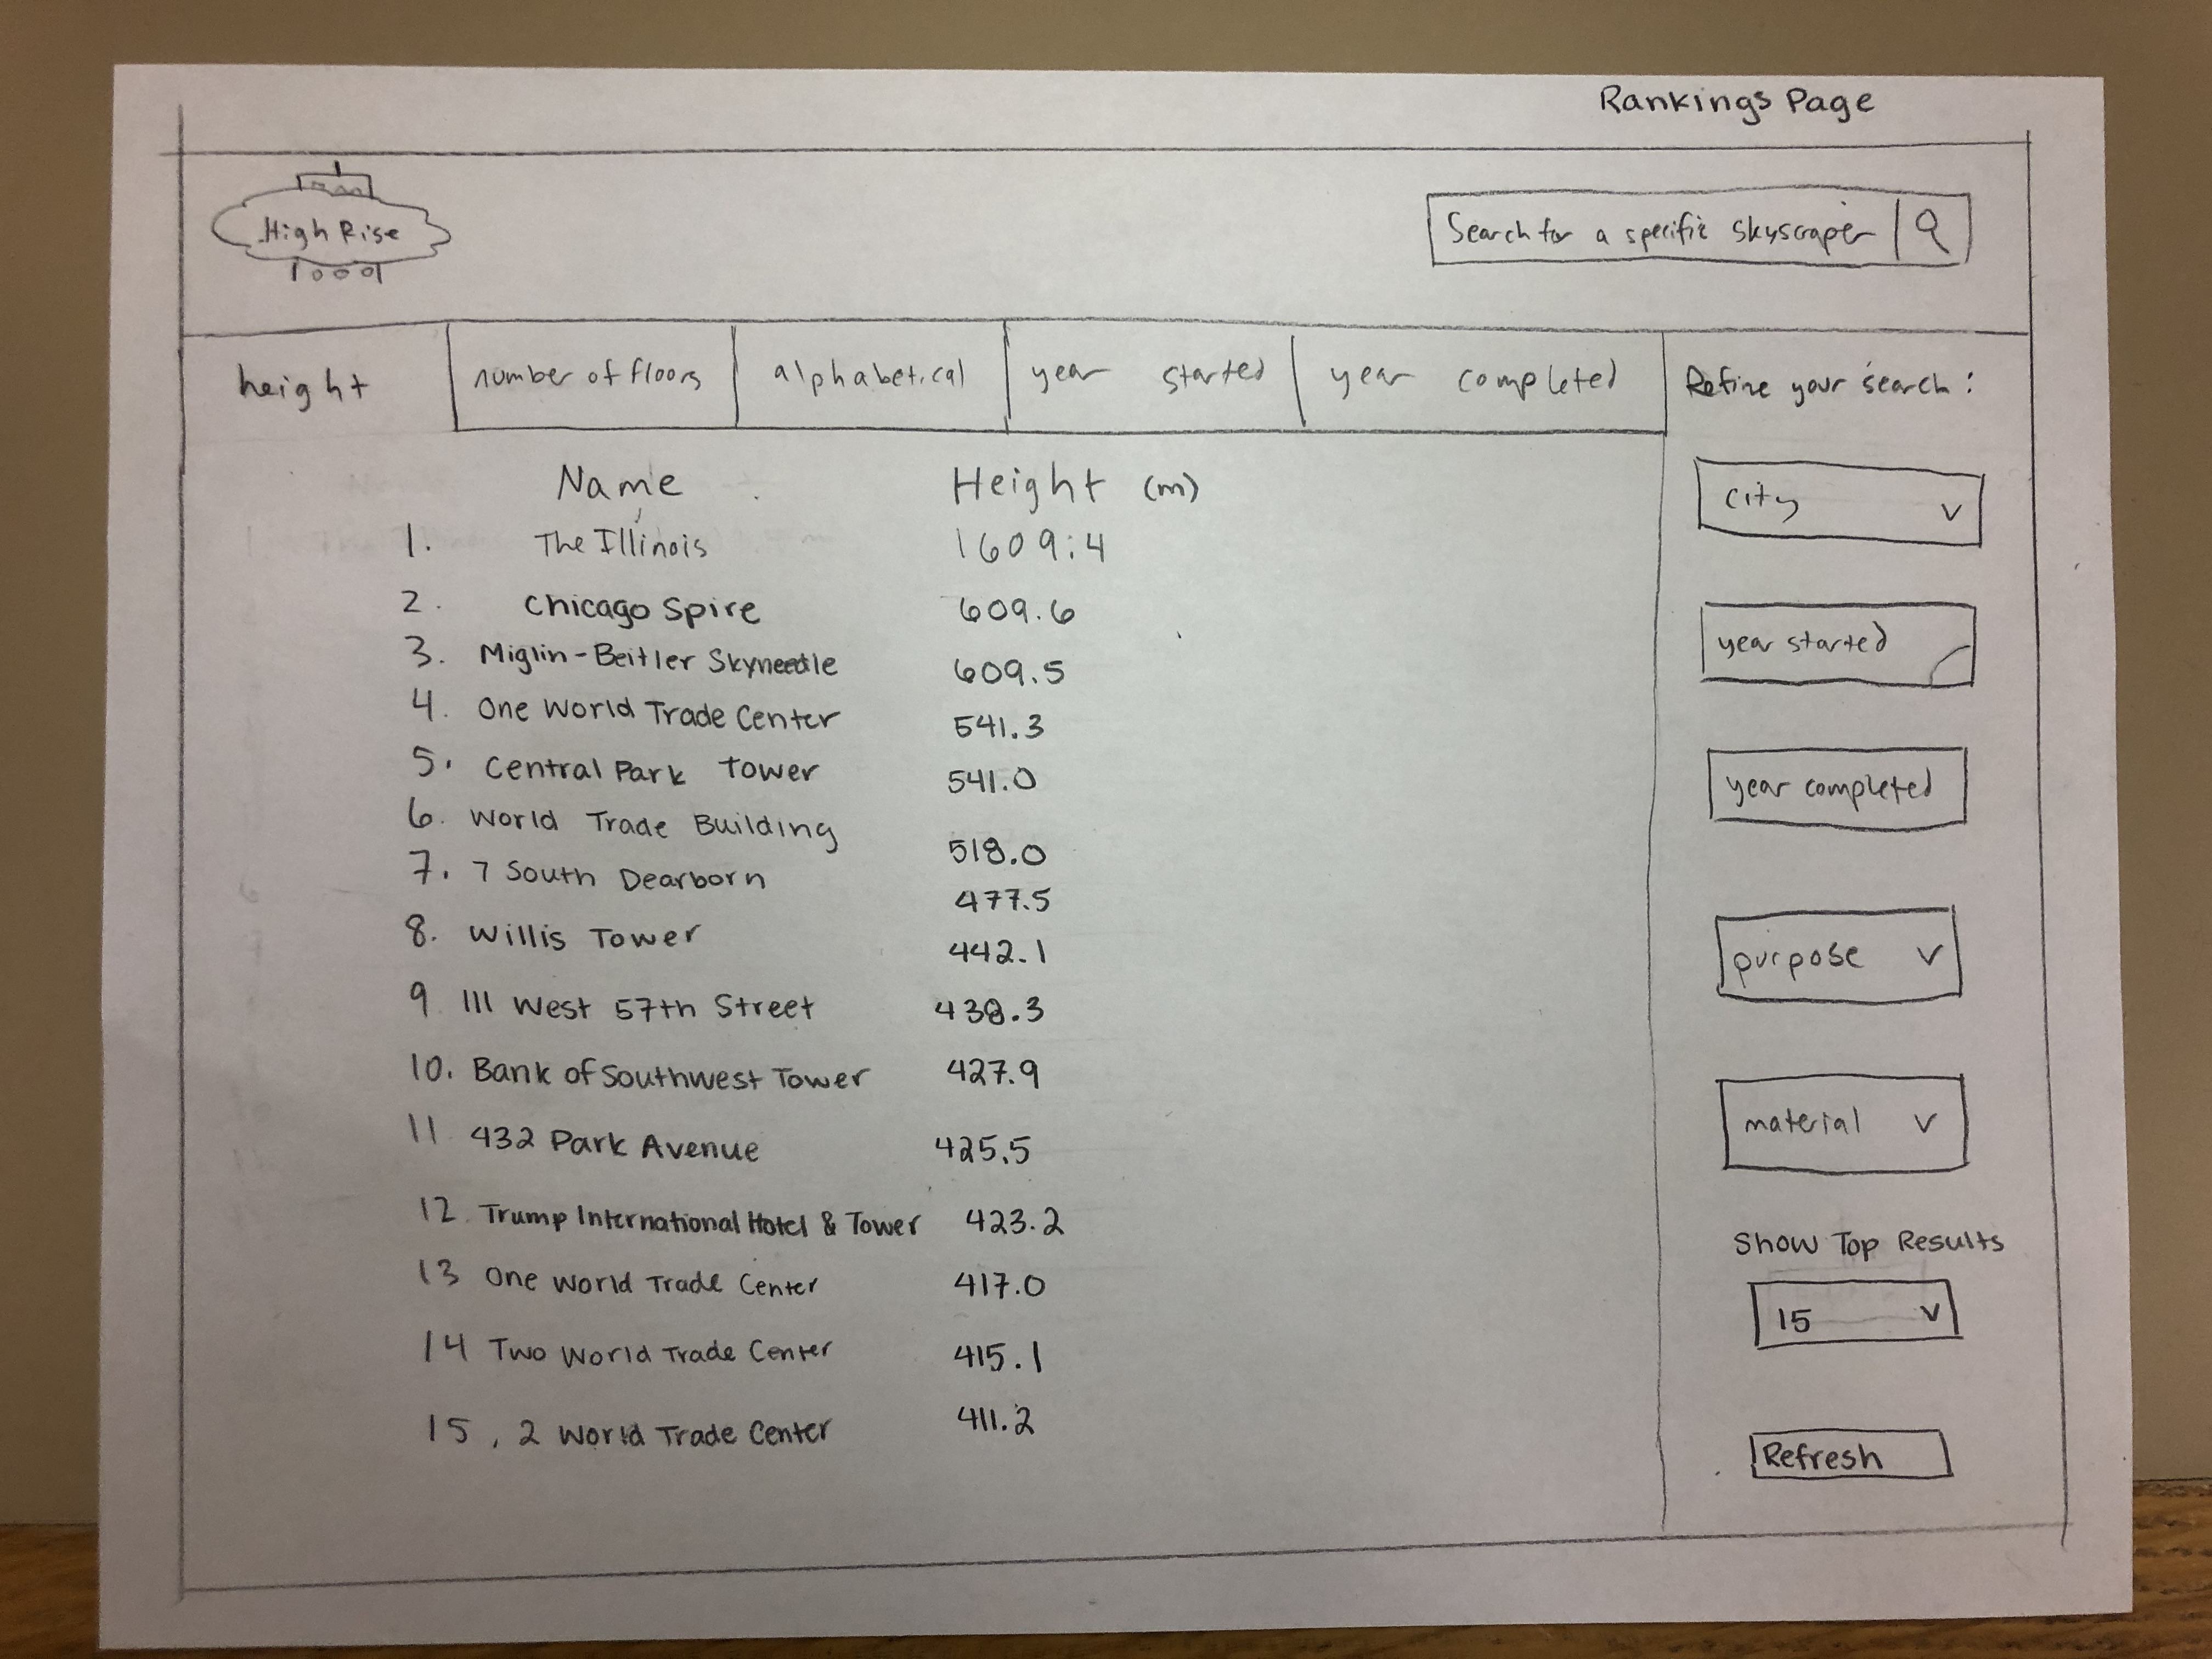 Rankings Page
High Rise
Search for a specific skyscraper
height number of floors alphabetical year started year completed Refine your search:
Name Height (m)
1. The Illinois 1609.4
2. Chicago Spire 609.6
3. Miglin-Beitler Skyneedle 609.5
4. One World Trade Center 541.3
5. Central Park Tower 541.0
6. World Trade Building 518.0
7. 7 South Dearborn 477.5
8. Willis Tower 442.1
9 111 West 57th Street 438.3
10. Bank of Southwest Tower 427.9
11 432 Park Avenue 425.5
12. Trump International Hotel & Tower 423.2
13 One World Trade Center 417.0
14 Two World Trade Center 415.1
15, 2 World Trade Center 411.2
city v
year started
year completed
purpose v
material v
Show Top Results
15 v
Refresh